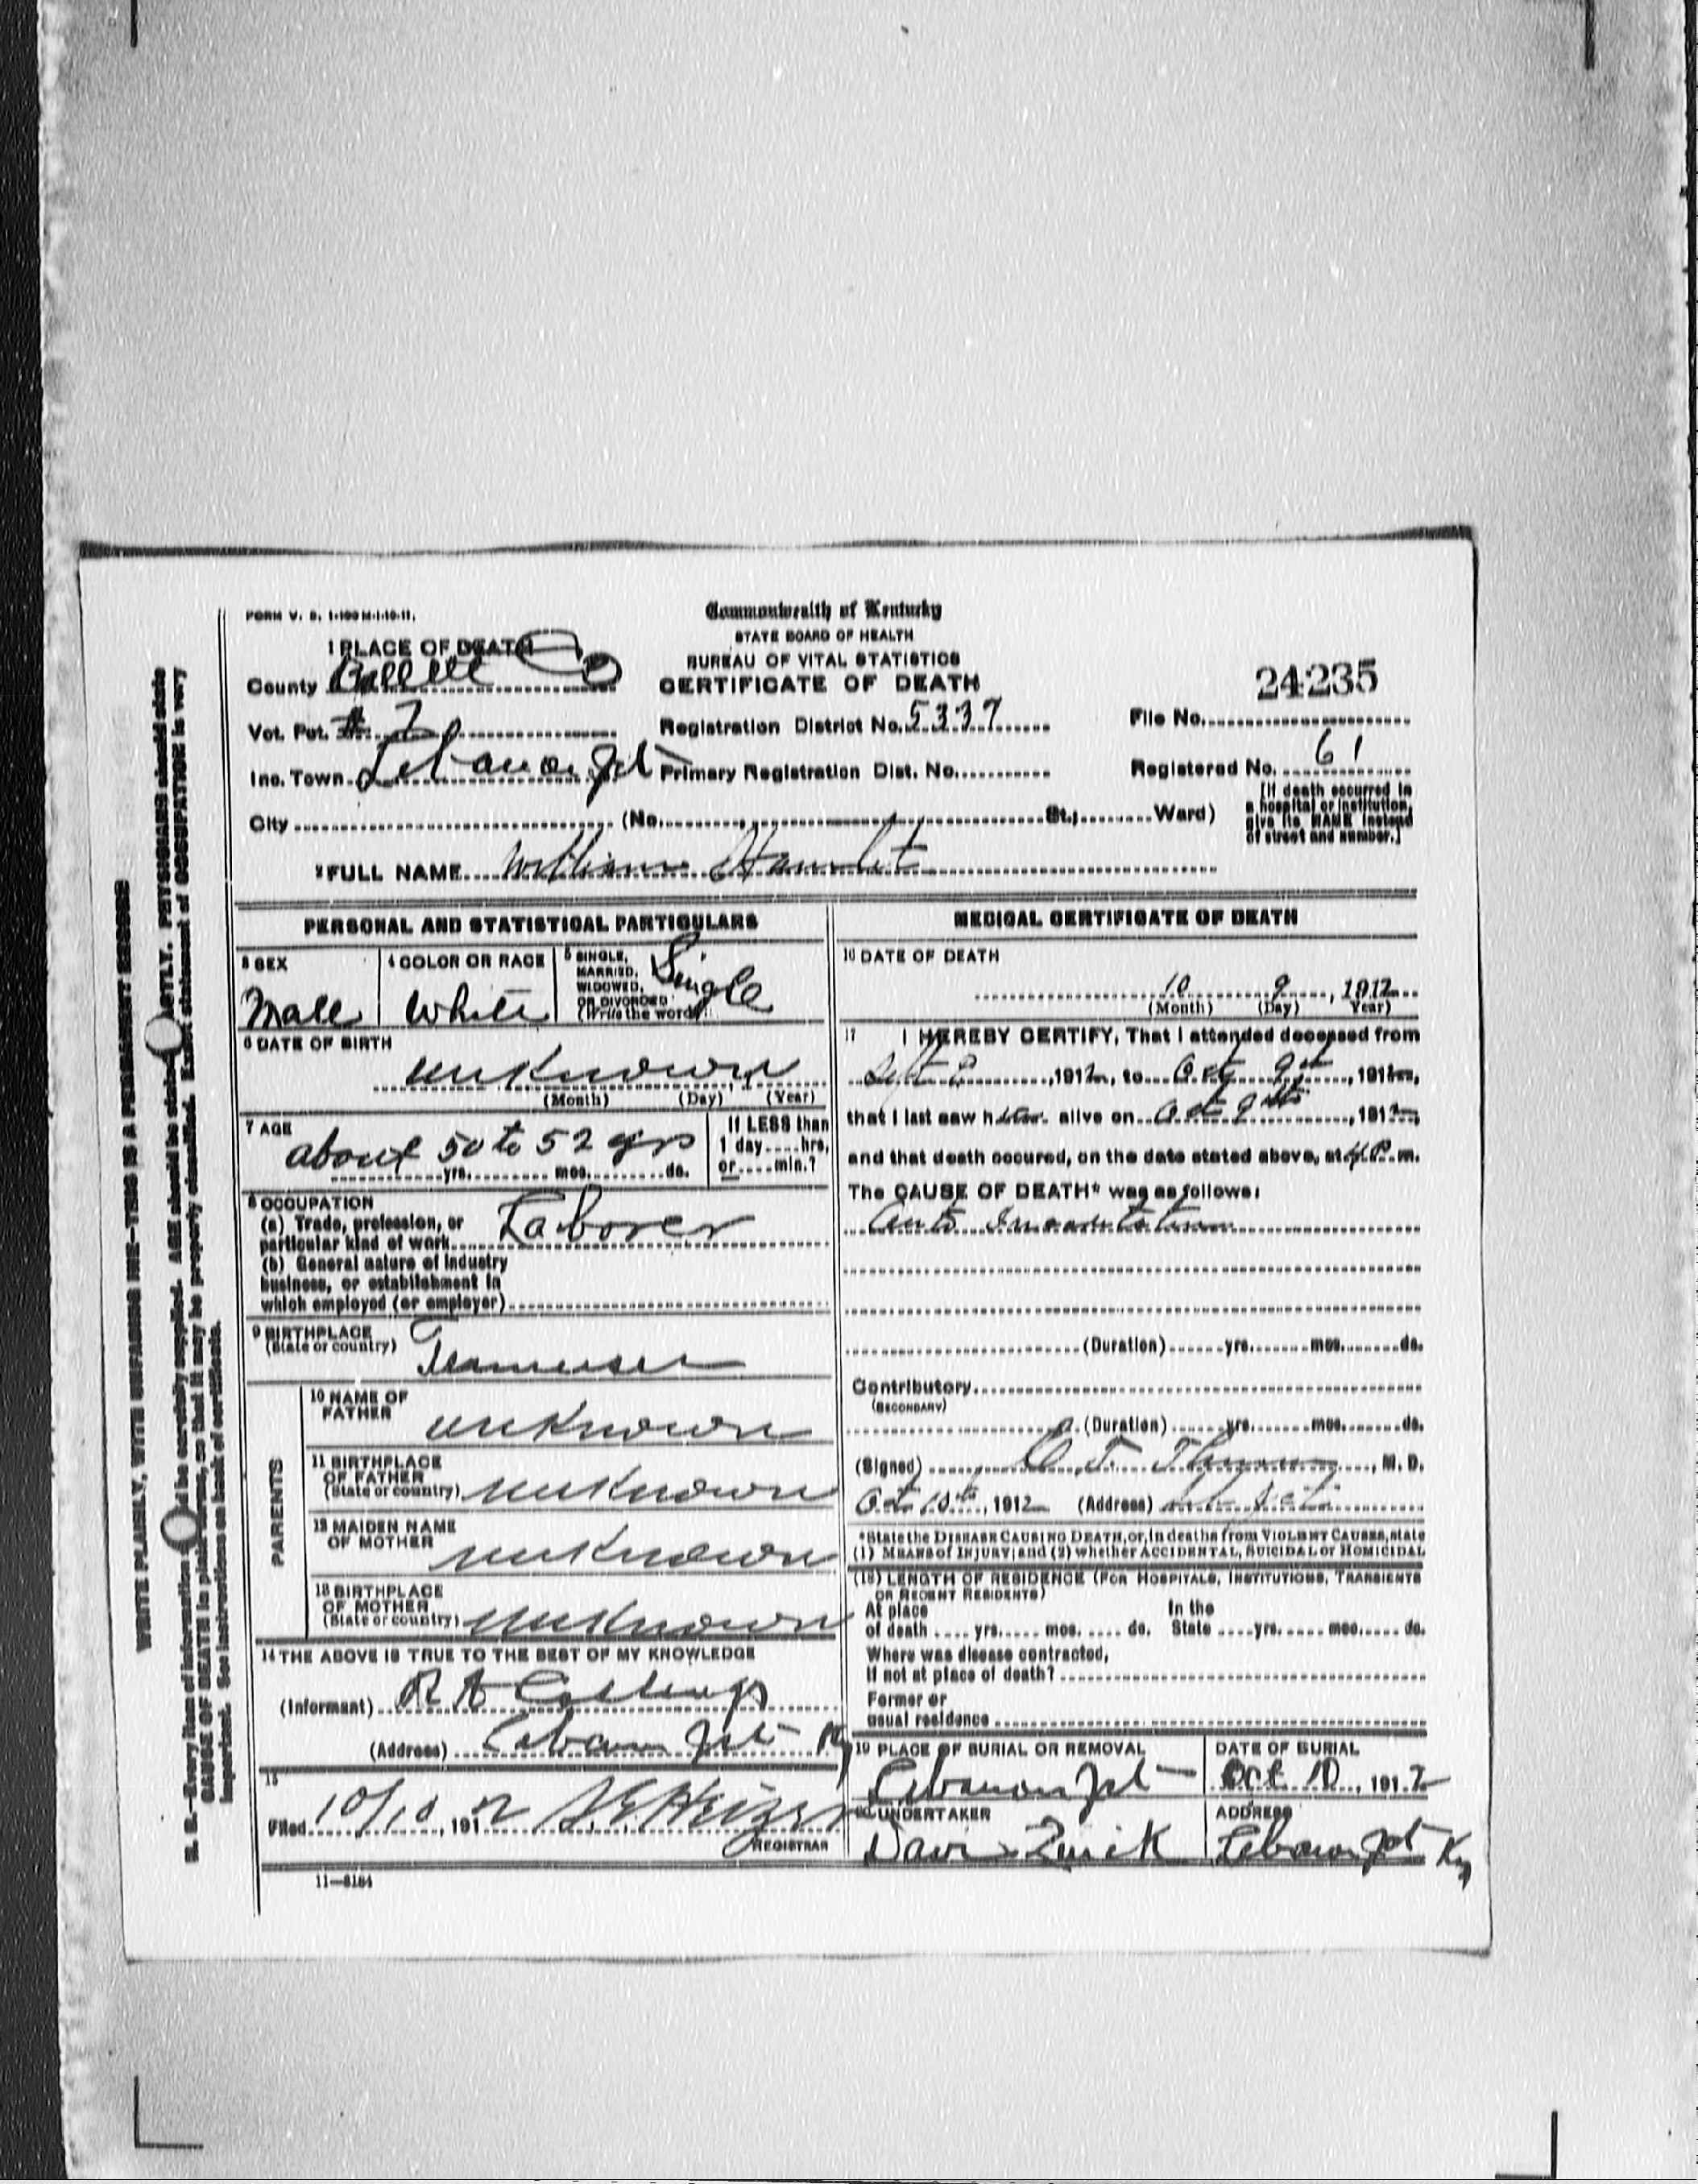 FORM V. S. 1-100 M-1-10-11.
Commonwealth of Kentucky
STATE BOARD OF HEALTH
BUREAU OF VITAL STATISTICS
CERTIFICATE OF DEATH
1 PLACE OF DEATH
County Bullitt Co
Vot. Pct. # 7
Registration District No. 5337
24235
File No.
Inc. Town Lebanon Jct
Primary Registration Dist. No.
Registered No. 61
City (No. St.; Ward)
[If death occurred in
a hospital or institution,
give its NAME instead
of street and number.]
2 FULL NAME William Hamlet
PERSONAL AND STATISTICAL PARTICULARS
3 SEX
Male
4 COLOR OR RACE
White
5 SINGLE,
MARRIED,
WIDOWED,
OR DIVORCED
(Write the word)
Single
6 DATE OF BIRTH
unknown
(Month) (Day) (Year)
7 AGE
about 50 to 52 yrs
yrs. mos. ds.
If LESS than
1 day....hrs,
or....min.?
8 OCCUPATION
(a) Trade, profession, or
particular kind of work Laborer
(b) General nature of industry
business, or establishment in
which employed (or employer)
9 BIRTHPLACE
(State or country)
Tennessee
PARENTS
10 NAME OF
FATHER
unknown
11 BIRTHPLACE
OF FATHER
(State or country) unknown
12 MAIDEN NAME
OF MOTHER
unknown
13 BIRTHPLACE
OF MOTHER
(State or country) unknown
14 THE ABOVE IS TRUE TO THE BEST OF MY KNOWLEDGE
(Informant) R A Collings
(Address) Lebanon Jct Ky
15
Filed 10/10, 1912
REGISTRAR
11—8184
MEDICAL CERTIFICATE OF DEATH
16 DATE OF DEATH
10 9, 1912
(Month) (Day) Year)
17 I HEREBY CERTIFY, That I attended deceased from
Sept, 1912, to Oct 9th, 1912,
that I last saw him alive on Oct 9th, 1912,
and that death occured, on the date stated above, at 4 P. m.
The CAUSE OF DEATH* was as follows:
Auto
(Duration) yrs. mos. ds.
Contributory
(SECONDARY)
(Duration) yrs. mos. ds.
(Signed), M. D.
Oct 10th, 1912 (Address)
*State the DISEASE CAUSING DEATH, or, in deaths from VIOLENT CAUSES, state
(1) MEANS of INJURY; and (2) whether ACCIDENTAL, SUICIDAL or HOMICIDAL
(18) LENGTH OF RESIDENCE (FOR HOSPITALS, INSTITUTIONS, TRANSIENTS
OR RECENT RESIDENTS)
At place In the
of death .... yrs. .... mos. .... ds. State .... yrs. .... mos. .... ds.
Where was disease contracted,
If not at place of death?
Former or
usual residence
19 PLACE OF BURIAL OR REMOVAL
Lebanon Jct
DATE OF BURIAL
Oct 10, 1912
20 UNDERTAKER
Davis Quick
ADDRESS
Lebanon Jct Ky
WRITE PLAINLY, WITH UNFADING INK—THIS IS A PERMANENT RECORD
N. B.—Every item of information should be carefully supplied. AGE should be stated EXACTLY. PHYSICIANS should state
CAUSE OF DEATH in plain terms, so that it may be properly classified. Exact statement of OCCUPATION is very
important. See instructions on back of certificate.